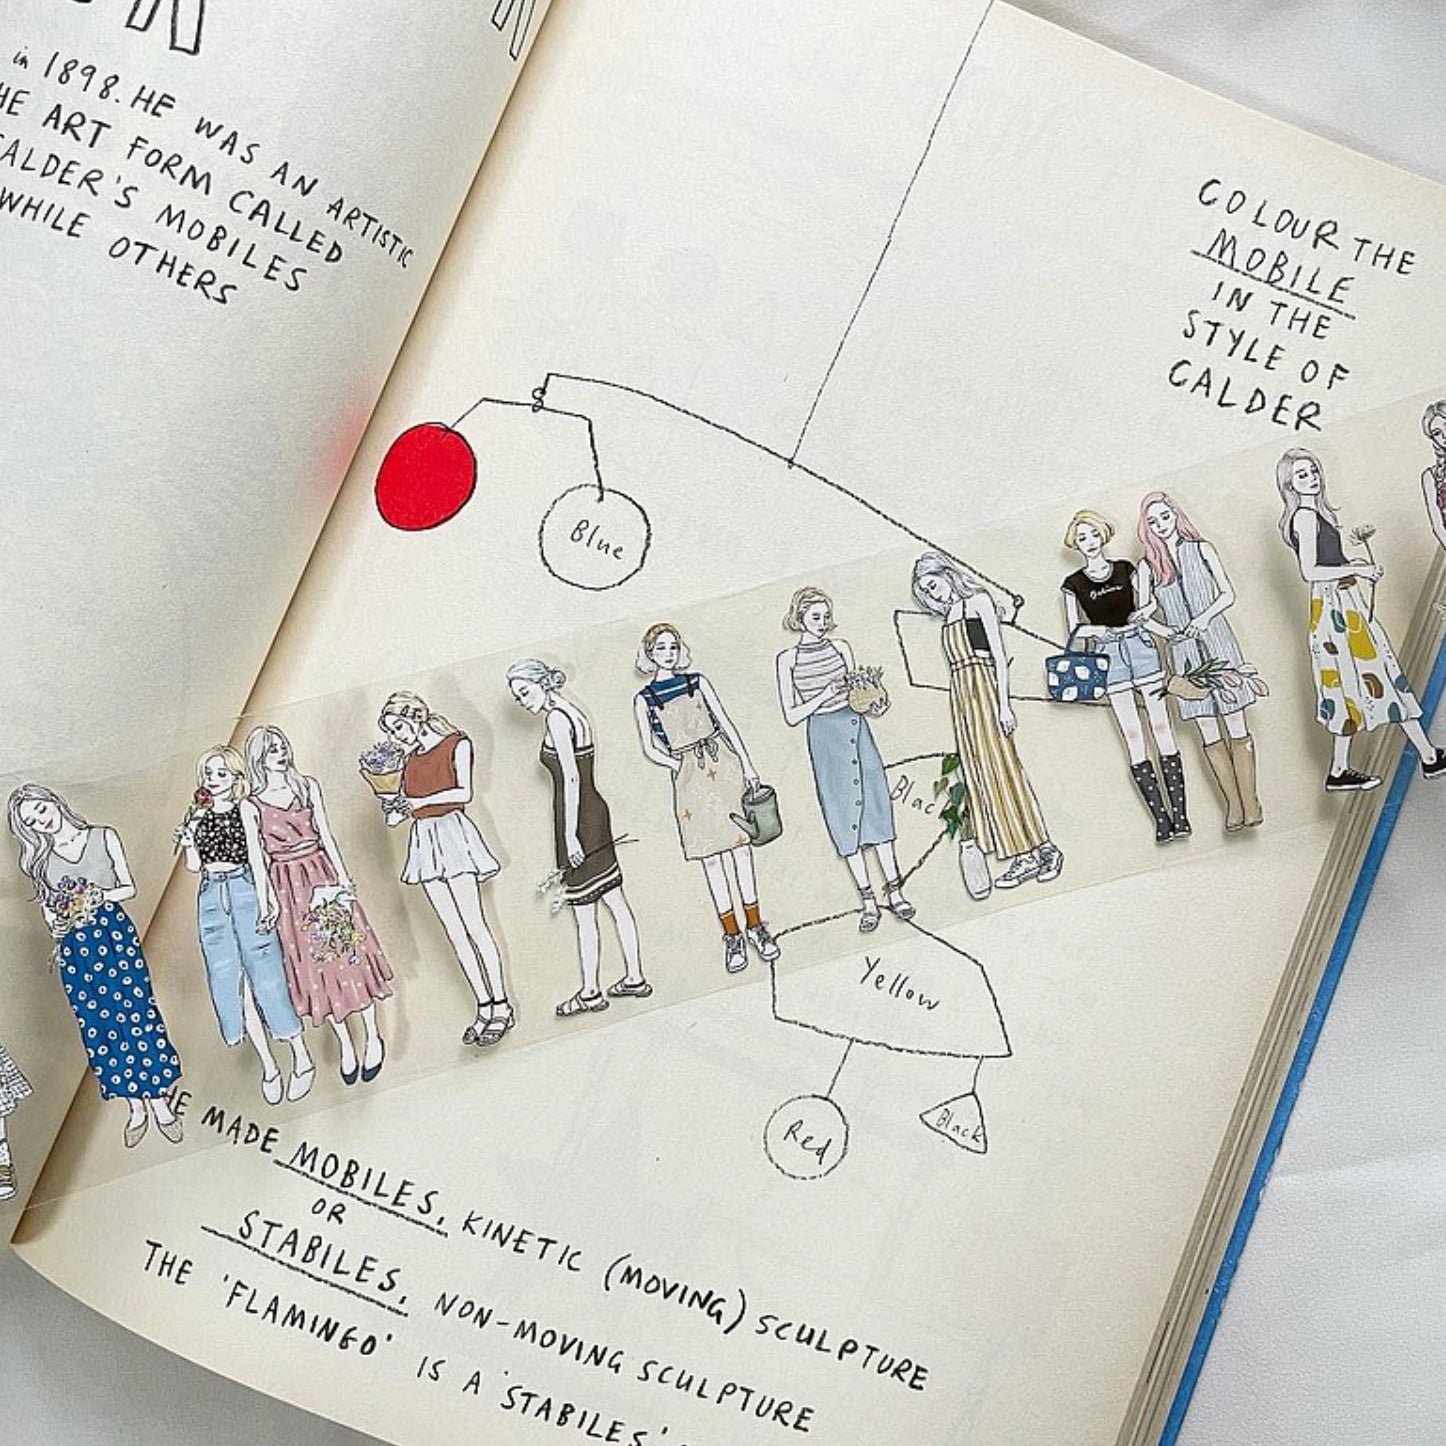 in 1898. HE WAS AN ARTISTIC
HE ART FORM CALLED
CALDER'S MOBILES
WHILE OTHERS
COLOUR THE
MOBILE
IN THE
STYLE OF
CALDER
Blue
Blac
Yellow
Red
Black
HE MADE MOBILES, KINETIC (MOVING) SCULPTURE
OR
STABILES, NON-MOVING SCULPTURE
THE 'FLAMINGO' IS A 'STABILES'